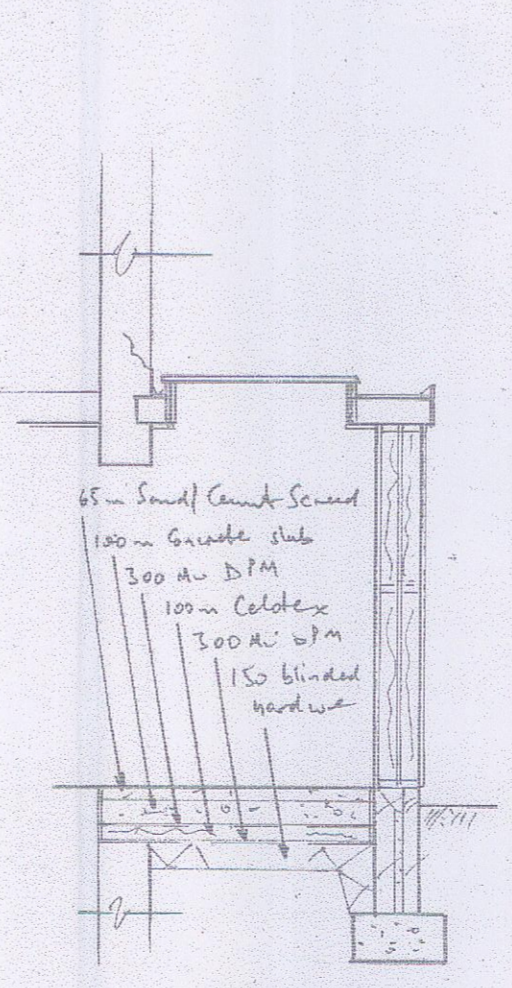 65m Sand/Cement Screed
100m Concrete slab
300 Mu DPM
100m Celotex
300 Mu DPM
150 blinded
hardcore